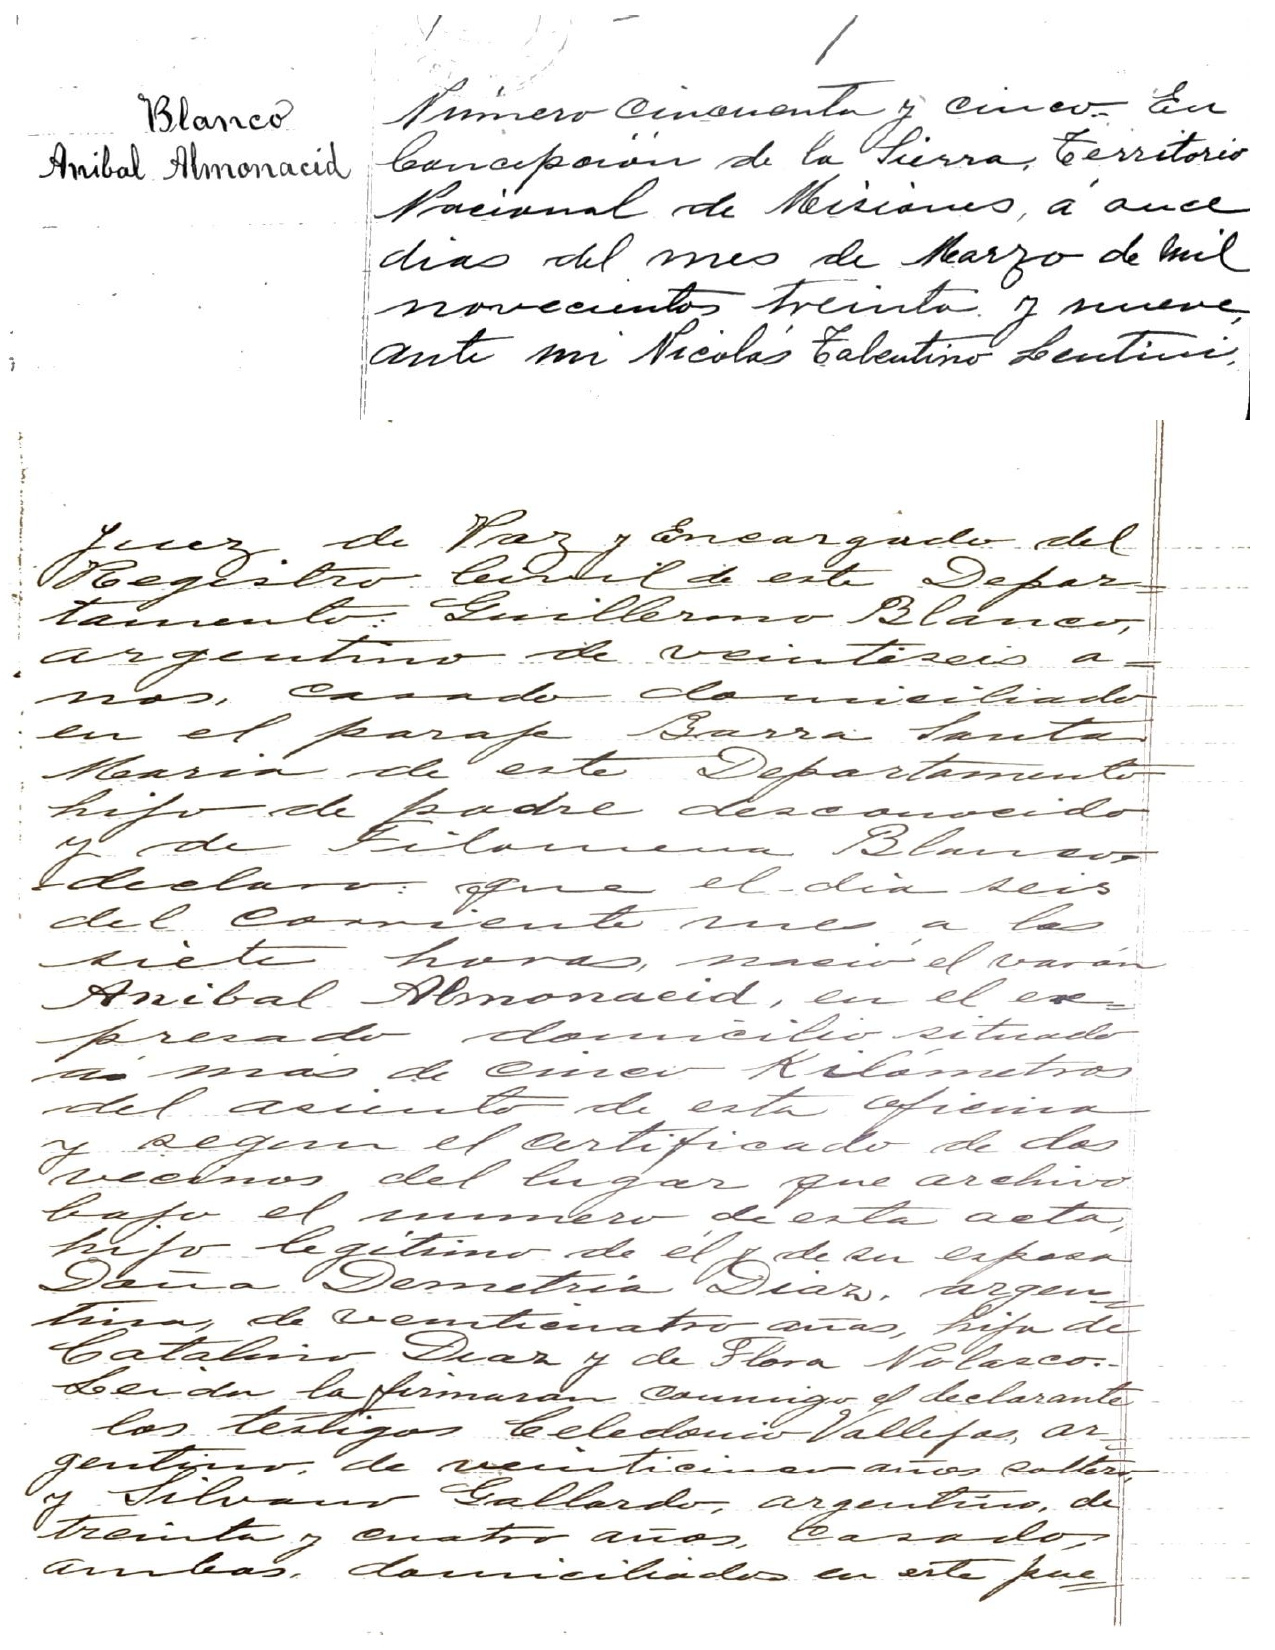 Blanco
Anibal Almonacid
Número cincuenta y cinco= En
Concepción de la Sierra, Territorio
Nacional de Misiones, á once
dias del mes de Marzo de mil
novecientos treinta y nueve,
ante mi Nicolás Talentino Lentini,
Juez de Paz y Encargado del
Registro Civil de este Depar=
tamento: Guillermo Blanco,
argentino de veintiseis a=
nos, casado domiciliado
en el paraje Barra Santa
Maria de este Departamento
hijo de padre desconocido
y de Filomena Blanco=
declaro: que el dia seis
del corriente mes a las
siete horas, nació el varón
Anibal Almonacid, en el ex=
presado domicilio situado
a más de cinco Kilómetros
del asiento de esta oficina
y segun el certificado de dos
vecinos del lugar que archivo
bajo el numero de esta acta,
hijo legítimo de él y de su esposa
Doña Demetria Diaz, argen=
tina, de veinticuatro años, hija de
Catalino Diaz y de Flora Nolasco.-
Leida la firmaron conmigo el declarante
los testigos Celedonio Vallejos, ar=
gentino, de veinticinco años soltero,
y Silvano Gallardo, argentino, de
treinta y cuatro años, casado,
ambos, domiciliados en este pue=